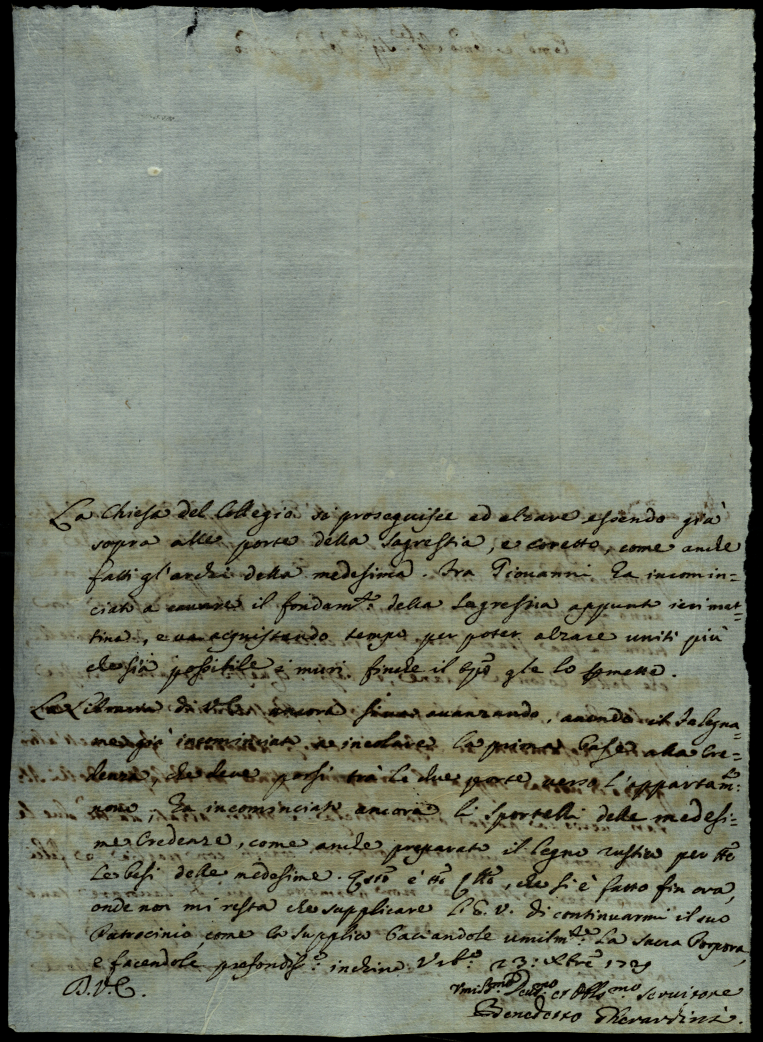 La Chiesa del Collegio si proseguisce ad alzare essendo già
sopra alle porte della Sagrestia, e coretto, come anche
fatti gl'archi della medesima. Fra Giovanni ha incomin=
ciato a cavare il fondam.to della Sagrestia appunto ieri mat=
tina, e va acquistando tempo per poter alzare uniti più
che sia possibile i muri, finche il glie lo
La Libreria di ancora avanzando, avendo il Falegna=
me già incominciato a incolare la prima Base alla Cre=
denza, che deve porsi trà le due porte verso l'appartam.to
ha incominciato ancora li Sportelli delle medesi=
me Credenze, come anche preparato il legno rustico per
le basi delle medesime. è che si è fatto fin ora,
onde non mi resta che supplicare L'E. V. di continuarmi il suo
Patrocinio, come la supplico baciandole umilm.te la Sacra Porpora,
e facendole profondis.o inchino. Urb.o 23: Xbre 1729
D. V. E.
Umil.mo Dev.mo et Obb.mo Servitore
Benedetto Gherardini.